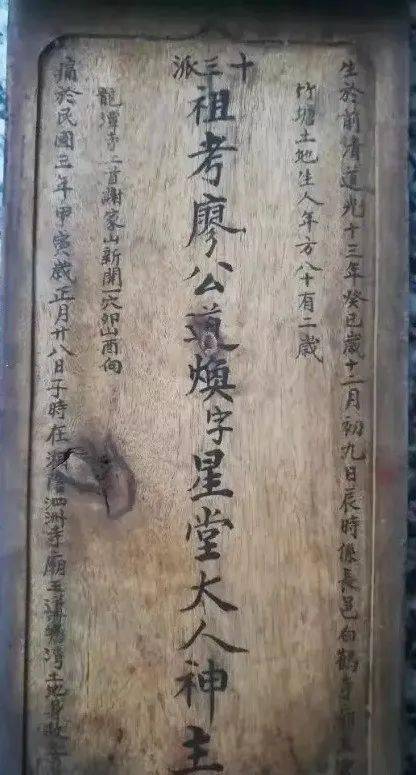 十三派
生於前清道光十三年癸巳歲十二月初九日辰時係長邑白鶴寺廟王
竹塘土地生人年方八十有二歲
祖考廖公道煥字星堂大人神主
龍潭寺上首謝家山新開一穴卯山酉向
痛於民國三年甲寅歲正月廿八日子時在湘陰泗洲寺廟王連鴨灣土地身故